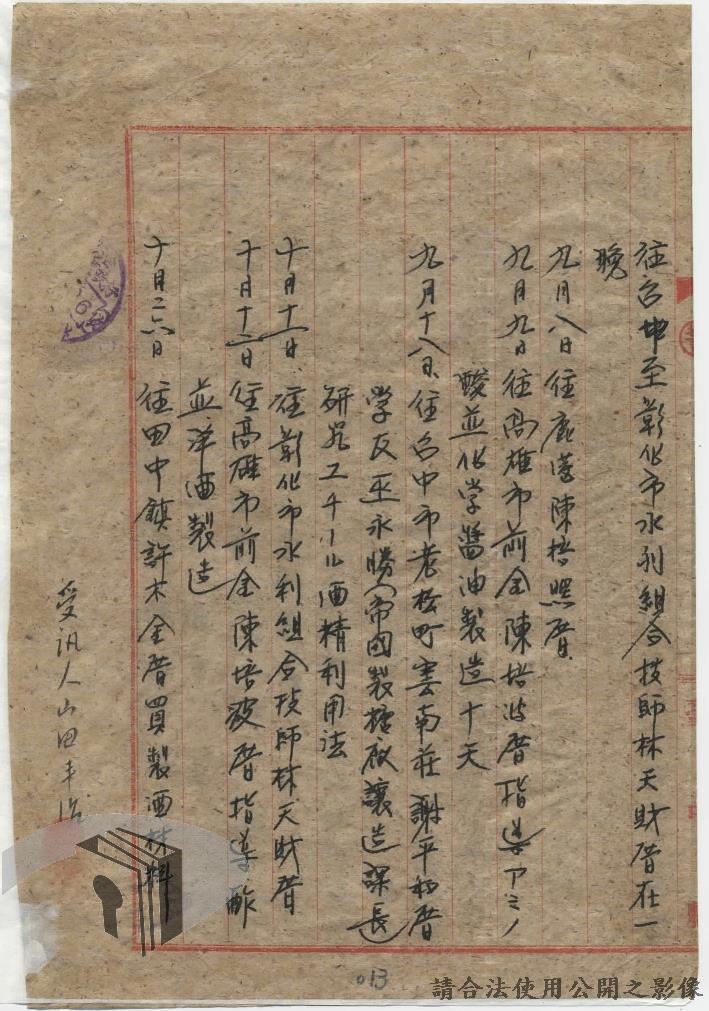 往台中至彰化市水利組合技師林天財厝在一
晚
九月八日往鹿港陳培照厝
九月九日往高雄市前金陳培波厝指導アミノ
酸並化学醬油製造十天
九月十八日往台中市老松町雲南莊謝平和厝
学友巫永勝(帝國製糖廠釀造課長)
研究エチール酒精利用法
十月十一日往彰化市水利組合技師林天財厝
十月十二日往高雄市前金陳培波厝指導酢
並洋酒製造
十月二六日往田中鎮許木金厝買製酒材料
受訊人山田丰
013
請合法使用公開之影像